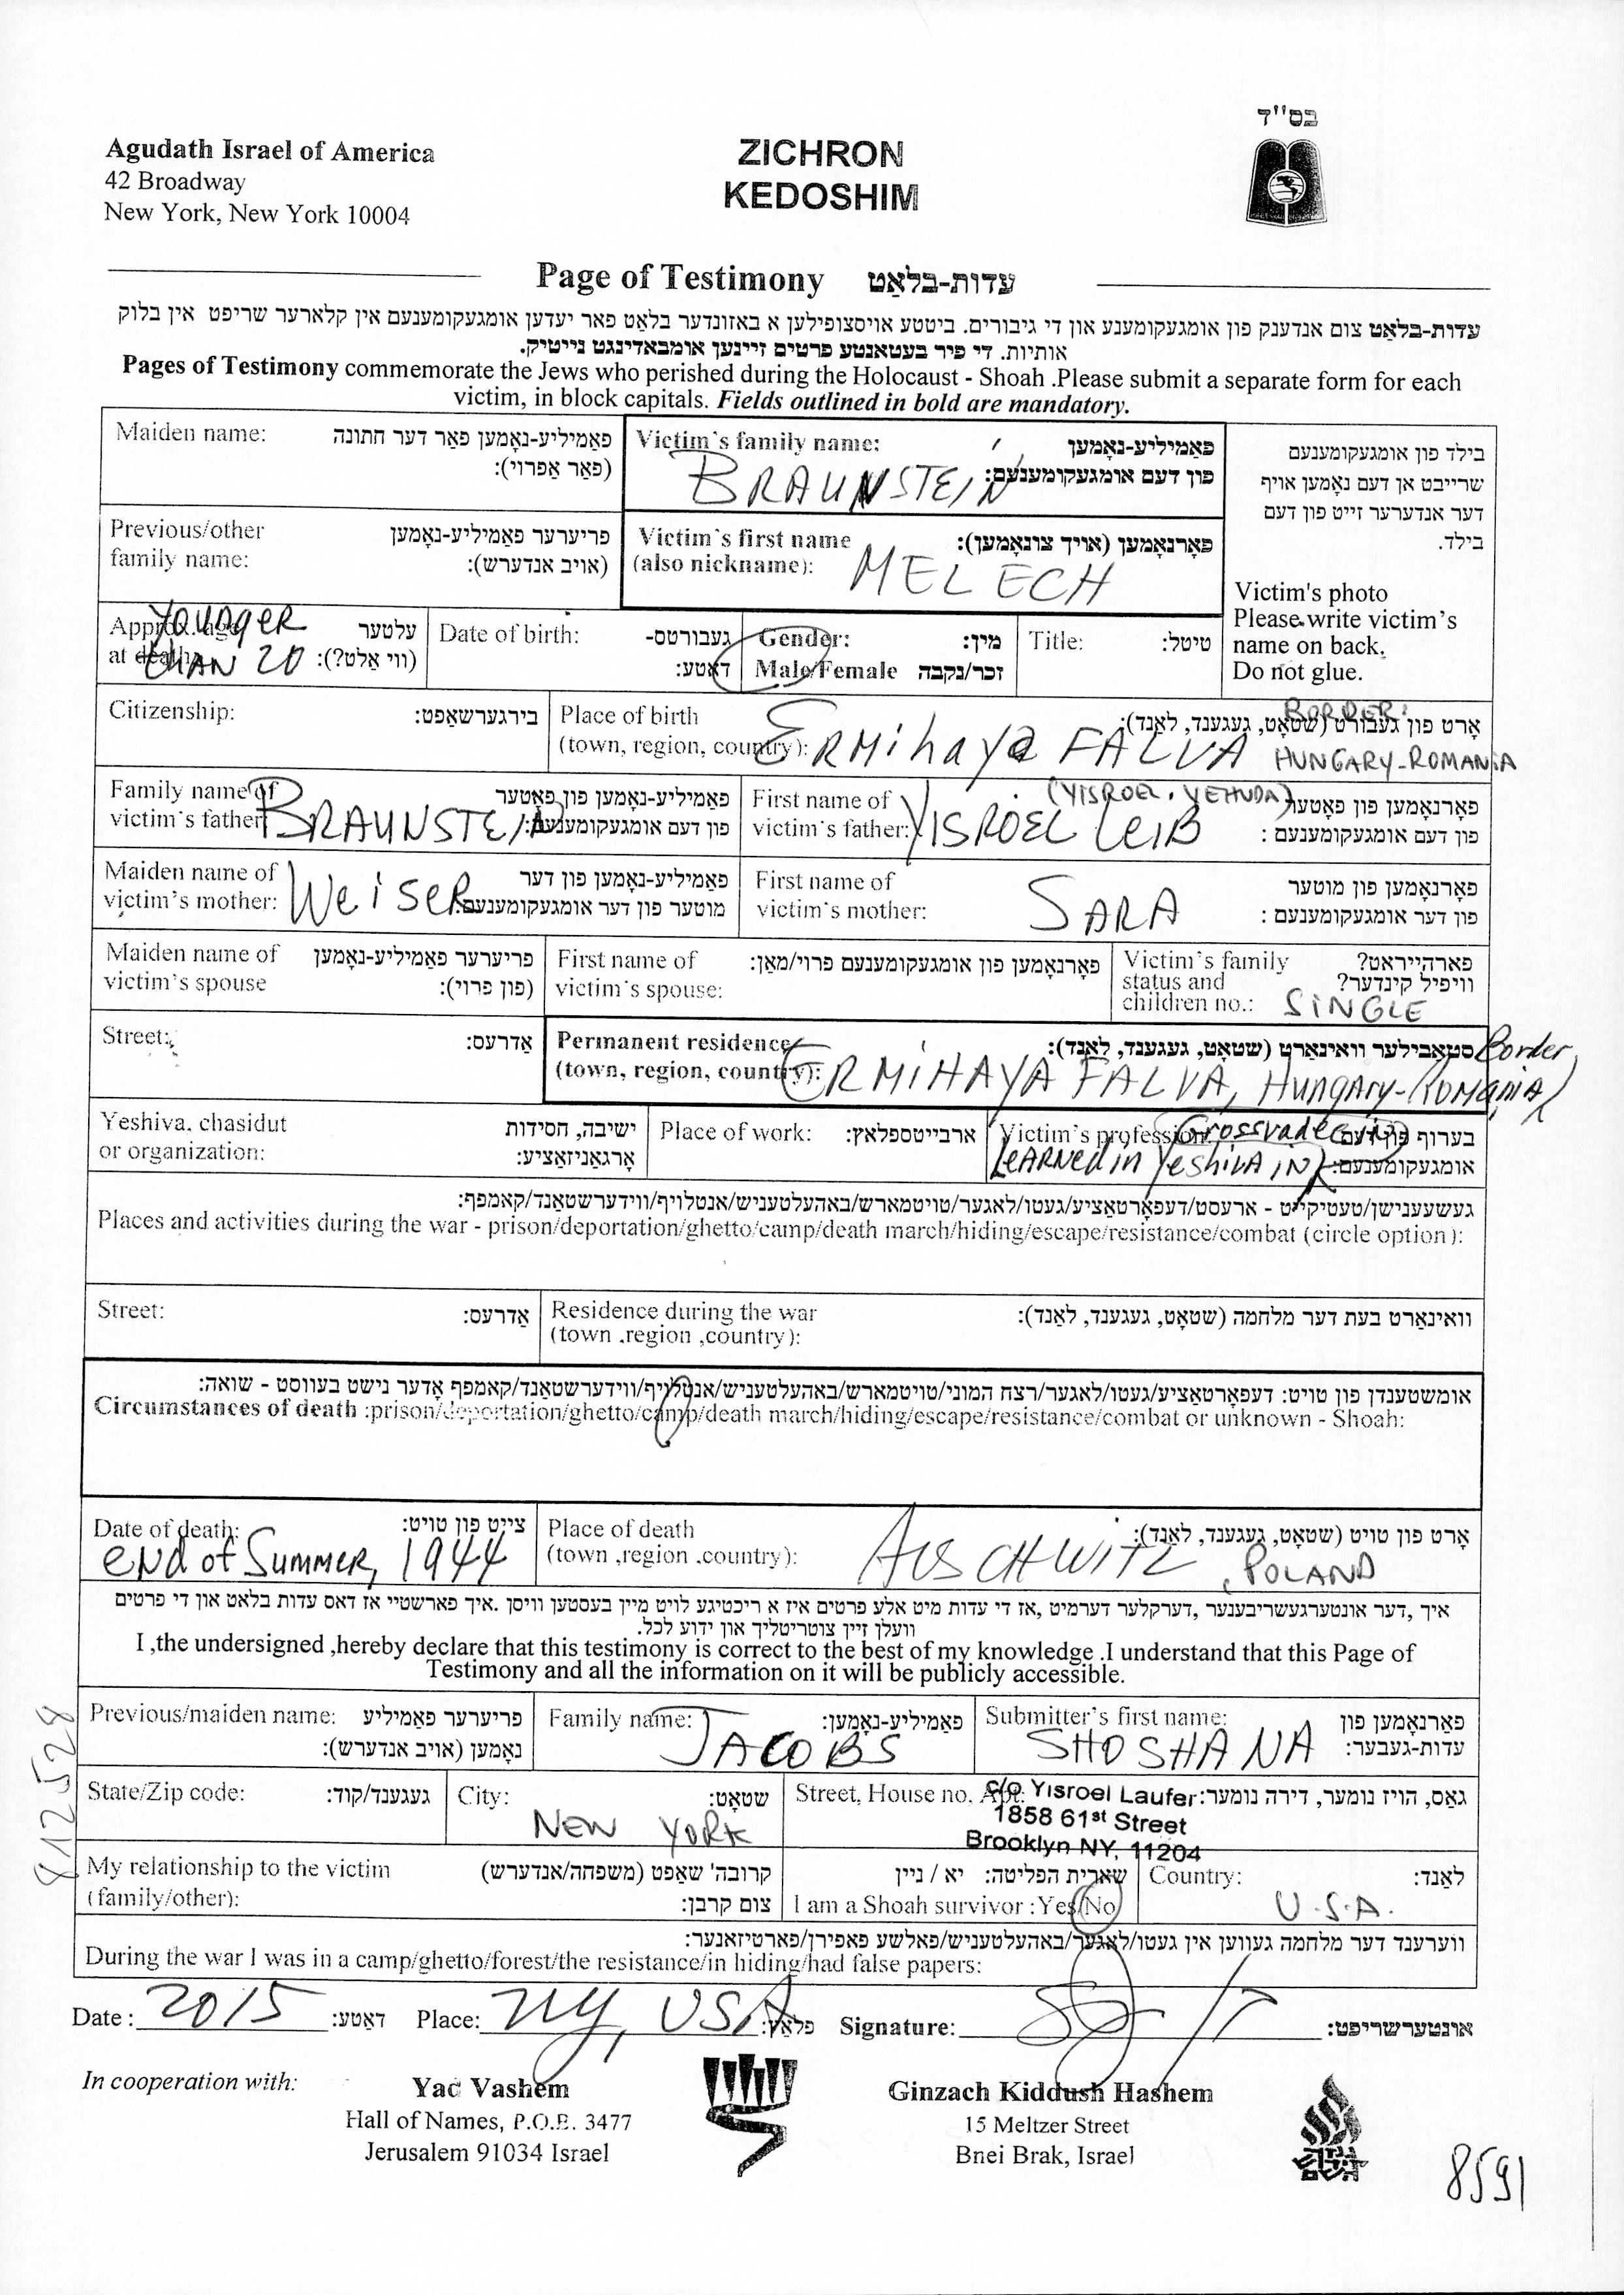 בס"ד
Agudath Israel of America
42 Broadway
New York, New York 10004
ZICHRON
KEDOSHIM
Page of Testimony עדות-בלאַט
עדות-בלאַט צום אנדענק פון אומגעקומענע און די גיבורים. ביטטע אויסצופילען א באזונדער בלאַט פאר יעדען אומגעקומענעם אין קלארער שריפט אין בלוק
אותיות. די פיר בעטאנטע פרטים זיינען אומבאדינגט נייטיק.
Pages of Testimony commemorate the Jews who perished during the Holocaust - Shoah .Please submit a separate form for each
victim, in block capitals. Fields outlined in bold are mandatory.
Maiden name: פאַמיליע-נאָמען פאַר דער חתונה
(פאַר אַפרוי):
Victim's family name: פאַמיליע-נאָמען
פון דעם אומגעקומענעם:
BRAUNSTEIN
בילד פון אומגעקומענעם
שרייבט אן דעם נאָמען אויף
דער אנדערער זייט פון דעם
בילד.
Victim's photo
Please write victim's
name on back.
Do not glue.
Previous/other פריערער פאַמיליע-נאָמען
family name: (אויב אנדערש):
Victim's first name פאָרנאָמען (אויך צונאָמען):
(also nickname):
MELECH
Approx. age עלטער
at death: (ווי אַלט?):
YOUNGER
than 20
Date of birth: געבורטס-
דאַטע:
Gender: מין:
Male/Female זכר/נקבה
Title: טיטל:
Citizenship: בירגערשאַפט:
Place of birth אָרט פון געבורט (שטאָט, געגענד, לאַנד):
(town, region, country):
ERMihaya FALVA
BORDER:
HUNGARY-ROMANIA
Family name of פאַמיליע-נאָמען פון פאָטער
victim's father: פון דעם אומגעקומענעם:
BRAUNSTEIN
First name of פאָרנאָמען פון פאָטער
victim's father: פון דעם אומגעקומענעם :
(YISROEL YEHUDA)
YISROEL LEIB
Maiden name of פאַמיליע-נאָמען פון דער
victim's mother: מוטער פון דער אומגעקומענעם:
WeiseR
First name of פאָרנאָמען פון מוטער
victim's mother: פון דער אומגעקומענעם :
SARA
Maiden name of פריערער פאַמיליע-נאָמען
victim's spouse (פון פרוי):
First name of פאָרנאָמען פון אומגעקומענעם פרוי/מאַן:
victim's spouse:
Victim's family פארהייראט?
status and וויפיל קינדער?
children no.: SINGLE
Street: אַדרעס:
Permanent residence סטאַבילער וואוינאָרט (שטאָט, געגענד, לאַנד):
(town, region, country):
ERMIHAYA FALVA, Hungary-ROMANIA
Border
Yeshiva, chasidut ישיבה, חסידות
or organization: אָרגאַניזאַציע:
Place of work: ארבייטספלאץ:
Victim's profession: בערוף פון דעם
אומגעקומענעם:
Grossvadein
LEARNED in Yeshiva in
געשעענישן/טעטיקייט - ארעסט/דעפּאָרטאַציע/געטו/לאגער/טויטמארש/באהעלטעניש/אנטלויף/ווידערשטאַנד/קאמפף:
Places and activities during the war - prison/deportation/ghetto/camp/death march/hiding/escape/resistance/combat (circle option):
Street: אַדרעס:
Residence during the war וואוינאָרט בעת דער מלחמה (שטאָט, געגענד, לאַנד):
(town ,region ,country):
אומשטענדן פון טויט: דעפּאָרטאַציע/געטו/לאגער/רצח המוני/טויטמארש/באהעלטעניש/אנטלויף/ווידערשטאַנד/קאמפף אָדער נישט בעוואוסט - שואה:
Circumstances of death :prison/deportation/ghetto/camp/death march/hiding/escape/resistance/combat or unknown - Shoah:
Date of death: צייט פון טויט:
end of Summer, 1944
Place of death אָרט פון טויט (שטאָט, געגענד, לאַנד):
(town ,region ,country):
AUSCHWITZ, POLAND
איך ,דער אונטערגעשריבענער ,דערקלער דערמיט ,אז די עדות מיט אלע פרטים איז א ריכטיגע לויט מיין בעסטען וויסן .איך פארשטיי אז דאס עדות בלאט און די פרטים
וועלן זיין צוטריטליך און ידוע לכל.
I ,the undersigned ,hereby declare that this testimony is correct to the best of my knowledge .I understand that this Page of
Testimony and all the information on it will be publicly accessible.
Previous/maiden name: פריערער פאַמיליע
נאָמען (אויב אנדערש):
Family name: פאַמיליע-נאָמען:
JACOBS
Submitter's first name: פאָרנאָמען פון
עדות-געבער:
SHOSHANA
State/Zip code: געגענד/קוד:
City: שטאָט:
NEW YORK
Street, House no. Apt: גאַס, הויז נומער, דירה נומער:
c/o Yisroel Laufer
1858 61st Street
Brooklyn NY, 11204
My relationship to the victim קרובה' שאַפט (משפחה/אנדערש)
(family/other): צום קרבן:
שארית הפליטה: יא / ניין
I am a Shoah survivor :Yes/No
Country: לאַנד:
U.S.A.
ווערענד דער מלחמה געווען אין געטו/לאַגער/באהעלטעניש/פאלשע פאפירן/פארטיזאנער:
During the war I was in a camp/ghetto/forest/the resistance/in hiding/had false papers:
Date : 2015 דאַטע: Place: NY, USA פּלאַץ: Signature: אונטערשריפט:
In cooperation with:
Yad Vashem
Hall of Names, P.O.B. 3477
Jerusalem 91034 Israel
Ginzach Kiddush Hashem
15 Meltzer Street
Bnei Brak, Israel
8591
812528